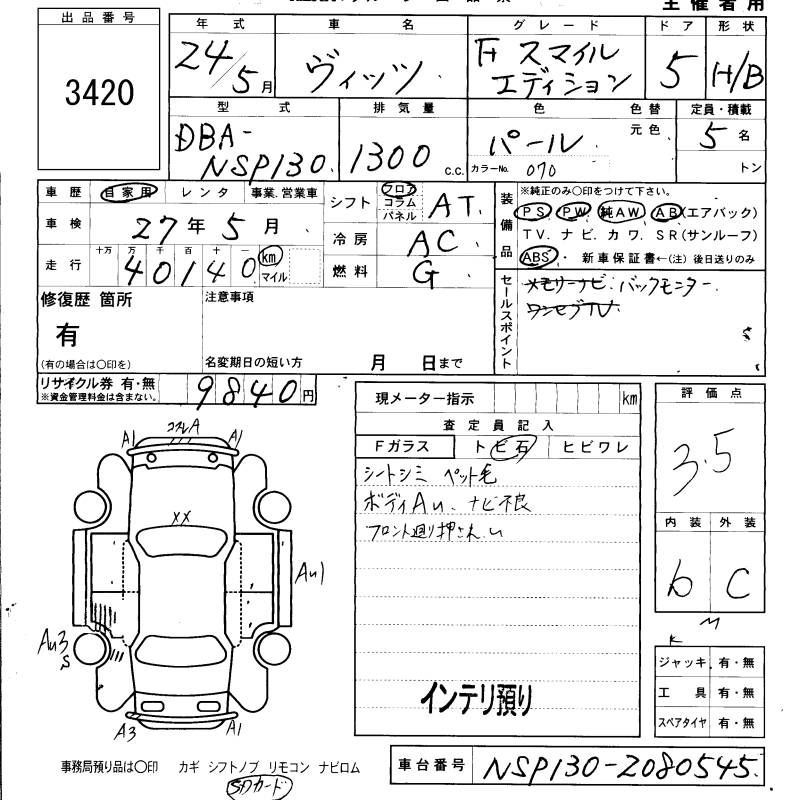 主催者用
出品番号
3420
年式
24/5月
車名
ヴィッツ
グレード
F スマイル
エディション
ドア
5
形状
H/B
型式
DBA-
NSP130
排気量
1300 c.c.
色
パール
色替
元色
カラーNo. 070
定員・積載
5名
トン
車歴 自家用 レンタ 事業.営業車
車検 27年5月
走行 十万 万 千 百 十 一
40140 km マイル
シフト フロア コラム パネル AT
冷房 AC
燃料 G
装備品
※純正のみ〇印をつけて下さい。
PS. PW. 純AW. AB(エアバック)
TV. ナビ. カワ. SR(サンルーフ)
ABS・ 新車保証書←(注) 後日送りのみ
セールスポイント
メモリーナビ. バックモニター.
ワンセグTV
修復歴 箇所
有
(有の場合は〇印を)
注意事項
名変期日の短い方 月 日まで
リサイクル券 有・無
※資金管理料金は含まない。
9840円
現メーター指示 km
査定員記入
Fガラス トビ石 ヒビワレ
シートシミ ペット毛
ボディAu. ナビ不良
フロント廻り押され
インテリ預り
評価点
3.5
内装 外装
b C
ジャッキ 有・無
工具 有・無
スペアタイヤ 有・無
A1 A A1
XX
Au1
Au3
S
A3 A1
事務局預り品は〇印 カギ シフトノブ リモコン ナビロム
SDカード
車台番号 NSP130-2080545